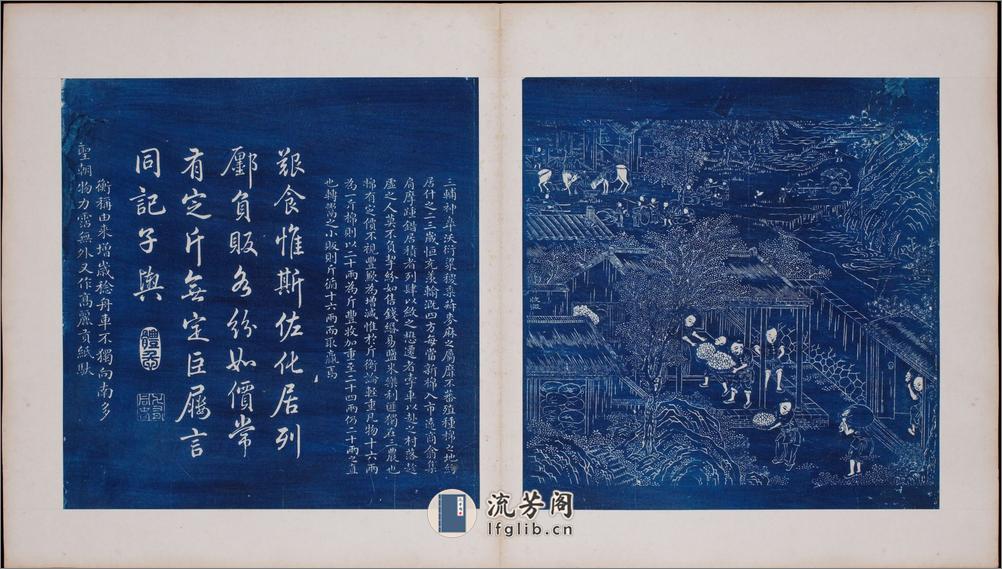 三輔神皋沃衍梁稷黍菽麥麻之屬靡不蕃殖種棉之地約
居什之二三歲恒充羨輸溉四方每當新棉入市遠商翕集
肩摩踵錯居積者列肆以斂之懋遷者牽車以赴之村落趁
虛之人莫不負挈紛如售錢緡易鹽米樂利匪獨在三農也
棉有定價不視豐歉為增減惟於斤衡論輕重凡物十六兩
為一斤棉則以二十兩為斤豐收加重至二十四兩仍二十兩之直
也轉鬻之小販則斤循十六兩而取贏焉
艱食惟斯佐化居列
鄽負販各紛如價常
有定斤無定巨屨言
同記子輿
衡稱由來增歲稔舟車不獨向南多
聖朝物力霑無外又作高麗貢紙馱
流芳阁
lfglib.cn